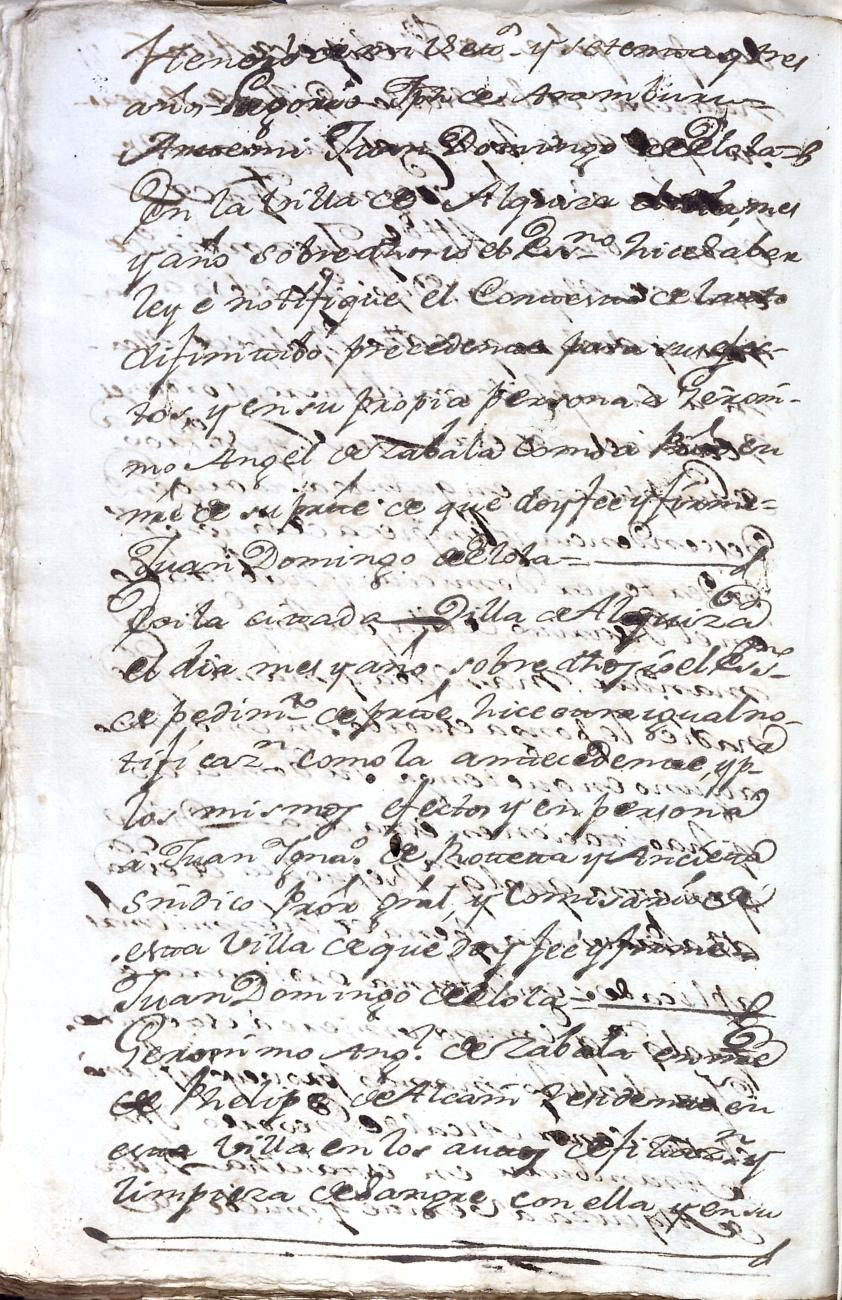 Henero de mil setez.^s y setenta y tres
años Liborio Jph de Aramburu=
Antemi Juan Domingo de Elola=
En la villa de Alquiza dia, mes
y año sobredho yo el Ess.^no hice saber
ley é notifiqué el Contesto de el auto
difinitibo precedente para sus efec-
tos, y en su propia persona a Geroni-
mo Angel de Zabala como a en
nre de su parte de que doy fee y firme=
Juan Domingo de Elola=
En la citada Villa de Alquiza
el dia mes y año sobredho yo el Ess.^no
de pedim.^to de parte hice otra igual no-
tificaz.^n como la antecedente, y p.^a
los mismos efectos y en persona
a Juan Igna.^o de Rotteta y Ancieta
sindico Prór grál, y Comisario de
esta Villa de que doy feé y firme=
Juan Domingo de Elola=
Geronimo Ang.^l de Zabala en nre
de Phelipe de Alcain residente en
esta Villa en los autos de filiaz.^n y
limpieza de sangre con ella y en su